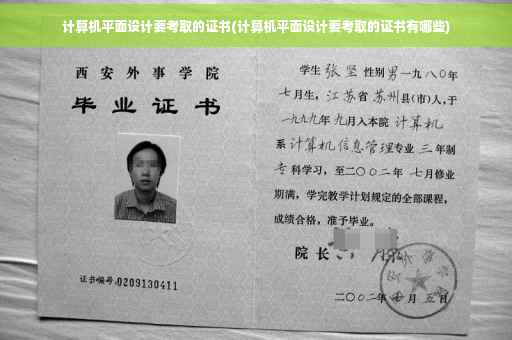 计算机平面设计要考取的证书(计算机平面设计要考取的证书有哪些)
西安外事学院
毕业证书
证书编号:0209130411
学生 张坚 性别 男 一九八〇年
七月生, 江苏省 苏州县(市)人,于
一九九九年 九月入本院 计算机
系 计算机信息管理专业 三 年制
专科学习,至二〇〇二年 七月修业
期满,学完教学计划规定的全部课程,
成绩合格,准予毕业。
院长
二〇〇二年 月 五 日